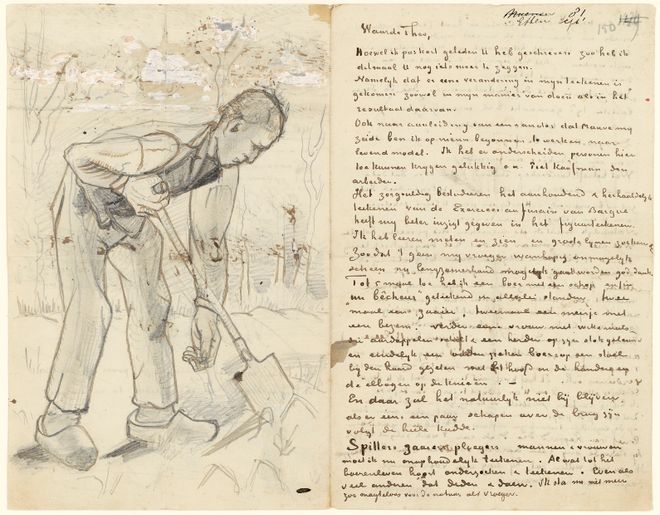 Etten Sept
Waarde Theo,
Hoewel ik pas kort geleden U heb geschreven zoo heb ik
ditmaal U nog iets meer te zeggen.
Namelijk dat er eene verandering in mijn teekenen is
gekomen zoowel in mijn manier van doen als in het
resultaat daarvan.
Ook naar aanleiding van een & ander dat Mauve mij
zeide ben ik op nieuw begonnen te werken naar
levend model. Ik heb er onderscheiden personen hier
toe kunnen krijgen gelukkig o.a. Piet Kaufman den
arbeider.
Het zorgvuldig bestuderen het aanhoudend & herhaaldelijk
teekenen van de Exercices au fusain van Bargue
heeft mij beter inzigt gegeven in het figuurteekenen.
Ik heb leeren meten en zien en groote lijnen zoeken &c.
Zoodat 't geen mij vroeger wanhopig onmogelijk
scheen nu langzamerhand mogelijk gaat worden God dank.
Tot 5 maal toe heb ik een boer met een schop enfin
un bêcheur geteekend in allerlei standen, twee
maal een zaaier, tweemaal een meisje met
een bezem. Verder eene vrouw met witte muts
die aardappelen schilt & een herder op zijn stok geleund
en eindelijk een ouden zieken boer op een stoel
bij den haard gezeten met het hoofd in de handen en
de elbogen op de knieën. –
En daar zal het natuurlijk niet bij blijven,
als er eens een paar schapen over de brug zijn
volgt de heele kudde.
Spitters zaaiers ploegers mannen & vrouwen
moet ik nu onophoudelijk teekenen. Al wat tot het
boerenleven hoort onderzoeken & teekenen. Even als
veel anderen dat deden & doen. Ik sta nu niet meer
zoo magteloos voor de natuur als vroeger.